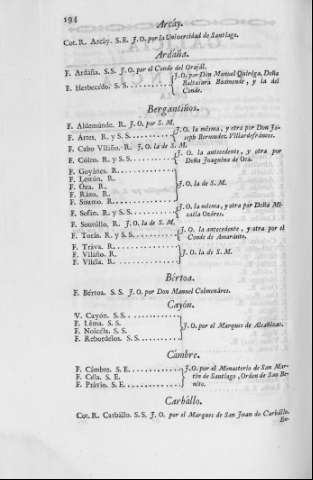 194
Arcáy.
Cot. R. Arcáy. S. E. J. O. por la Universidad de Santiago.
Ardáña.
F. Ardáña. S. S. J. O. por el Conde del Grajál.
F. Herbecédo. S. S. J. O. por Don Manuel Quiróga, Doña
Baltasara Baamonde, y la del
Conde.
Bergantiños.
F. Aldemúnde. R. J. O. por S. M.
F. Artes. R. y S. S. J. O. la misma, y otra por Don Jo-
seph Bermudez Villardefrancos.
F. Cabo Viláño. R. J. O. la de S. M.
F. Cúbro. R. y S. S. J. O. la antecedente, y otra por
Doña Joaquina de Oca.
F. Goyánes. R.
F. Leilón. R.
F. Oza. R.
F. Rázo. R.
F. Sísamo. R.
J. O. la de S. M.
F. Sofán. R. y S. S. J. O. la misma, y otra por Doña Mi-
caéla Osóres.
F. Soutúllo. R. J. O. la de S. M.
F. Torás. R. y S. S. J. O. la antecedente, y otra por el
Conde de Amarante.
F. Tráva. R.
F. Viláño. R.
F. Viléla. R.
J. O. la de S. M.
Bértoa.
F. Bértoa. S. S. J. O. por Don Manuel Colmenáres.
Cayón.
V. Cayón. S. S.
F. Léma. S. S.
F. Noicéla. S. S.
F. Rebordélos. S. S.
J. O. por el Marques de Alcañizas.
Cámbre.
F. Cámbre. S. E.
F. Cela. S. E.
F. Právio. S. E.
J. O. por el Monasterio de San Mar-
tin de Santiago, Orden de San Be-
nito.
Carbállo.
Cot. R. Carbállo. S. S. J. O. por el Marques de San Juan de Carbállo.